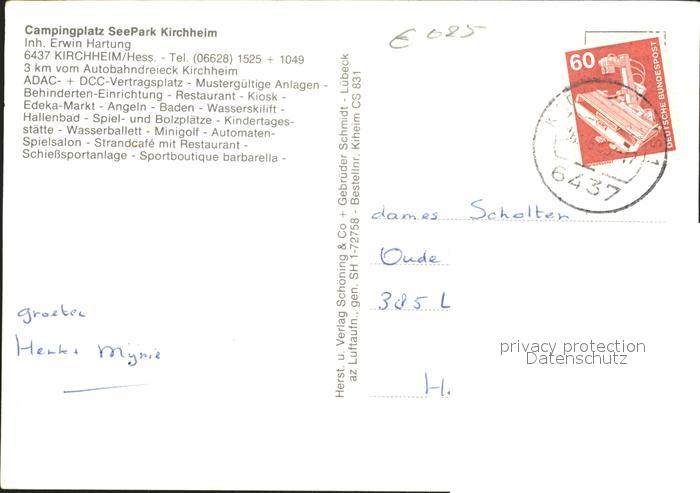 Campingplatz SeePark Kirchheim
Inh. Erwin Hartung
6437 KIRCHHEIM/Hess. - Tel. (06628) 1525 + 1049
3 km vom Autobahndreieck Kirchheim
ADAC- + DCC-Vertragsplatz - Mustergültige Anlagen -
Behinderten-Einrichtung - Restaurant - Kiosk -
Edeka-Markt - Angeln - Baden - Wasserskilift -
Hallenbad - Spiel- und Bolzplätze - Kindertages-
stätte - Wasserballett - Minigolf - Automaten-
Spielsalon - Strandcafé mit Restaurant -
Schießsportanlage - Sportboutique barbarella -
groeten
Herst. u. Verlag Schöning & Co + Gebrüder Schmidt - Lübeck
az Luftaufn., gen. SH 1-72758 - Bestellnr. Kiheim CS 831
€ 025
60
DEUTSCHE BUNDESPOST
6437
dames Scholten
Oude
385 L
H.
privacy protection
Datenschutz